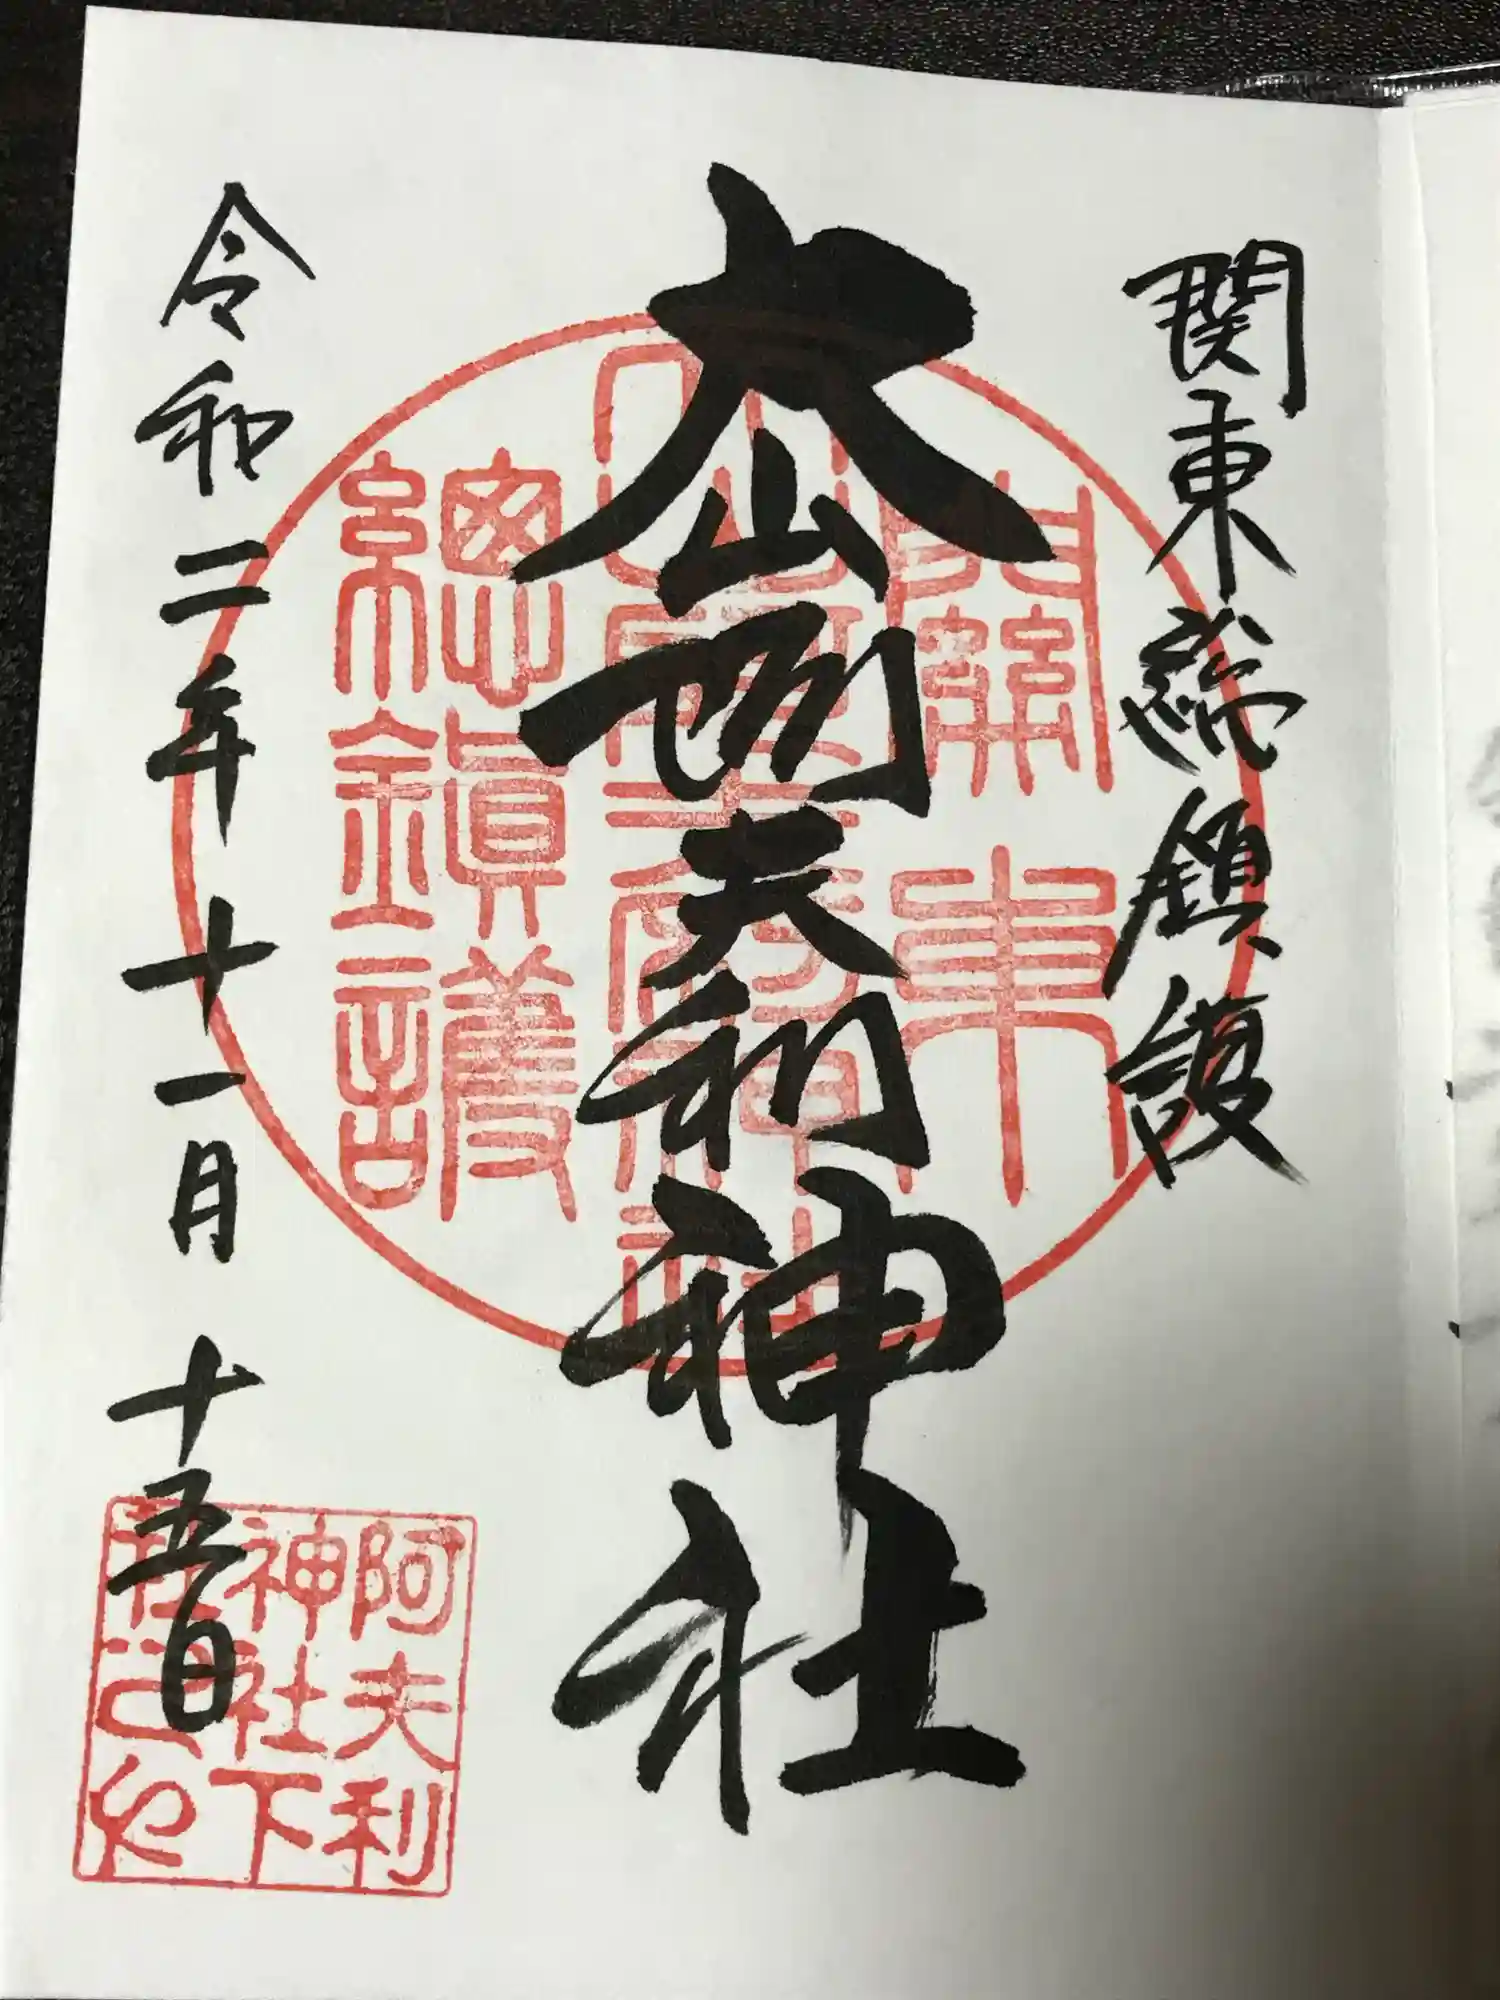 関東総鎮護
大山阿夫利神社
令和二年十一月十五日
關東
總鎮護
阿夫利
神社下
社之印